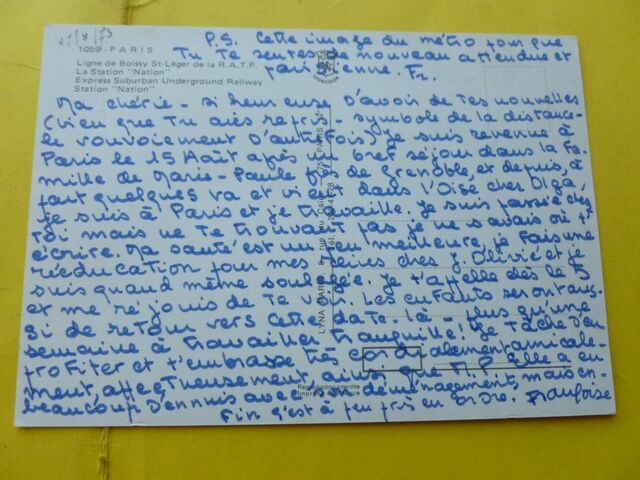 27/8/73
P.S. Cette image du métro pour que
tu te sentes de nouveau attendue et
parisienne. Fr.
1059 - PARIS
Ligne de Boissy St-Léger de la R.A.T.P.
La Station "Nation"
Express Suburban Underground Railway
Station "Nation"
Ma chérie - Si heureuse d'avoir de tes nouvelles
(bien que tu aies repris - symbole de la distance -
le vouvoiement d'autrefois) Je suis revenue à
Paris le 15 Août après un bref séjour dans la fa-
mille de Marie-Paule près de Grenoble, et depuis, à
part quelques va et vient dans l'Oise chez Olga,
je suis à Paris et je travaille. Je suis passée chez
toi mais ne te trouvant pas je ne savais où t'
écrire. Ma santé est un peu meilleure, je fais une
rééducation pour mes chez J. Olivié et je
suis quand même soulagée. Je t'appelle dès le 5
et me réjouis de te voir. Les enfants seront aus-
si de retour vers cette date là - plus qu'une
semaine à travailler tranquille! Je tâche d'en
profiter et t'embrasse très cordialement, amicale-
ment, affectueusement, ainsi que M.P. Elle a eu
beaucoup d'ennuis avec son déménagement, mais en-
fin c'est à peu près en ordre. Françoise
LYNA PARIS
Reproduction interdite